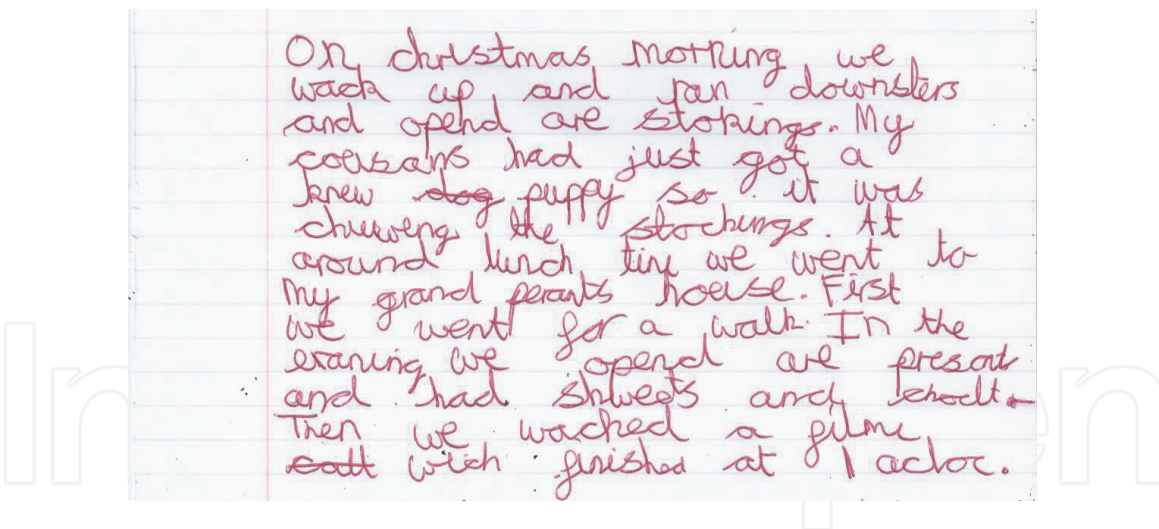 On christmas morning we
wack up and ran downsters
and opend are stokings. My
cousans had just got a
knew dog puppy so it was
chuweng the stockings. At
around lunch time we went to
my grand perants house. First
we went for a walk. In the
evaning we opend are present
and had shweets and
Then we wached a filme
wich finished at 1 acloc.